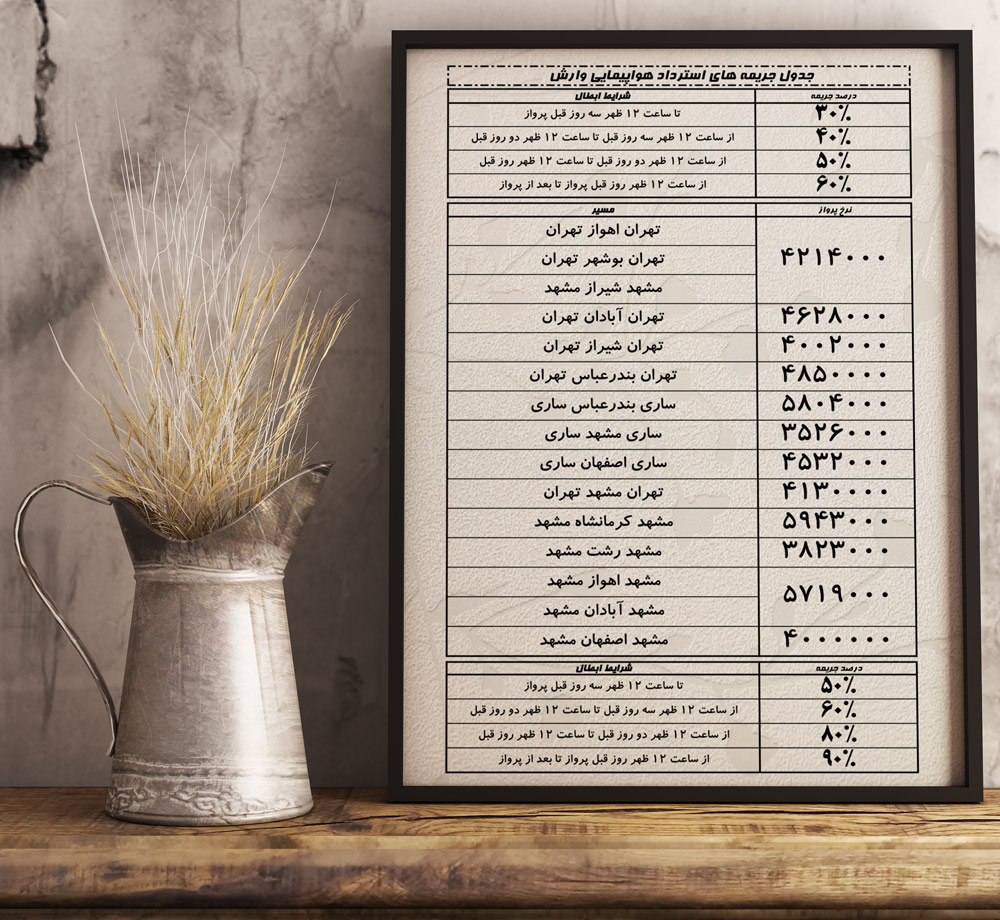 جدول جریمه های استرداد هواپیمایی وارش
درصد جریمه	شرایط ابطال
۳۰٪	تا ساعت ۱۲ ظهر سه روز قبل پرواز
۴۰٪	از ساعت ۱۲ ظهر سه روز قبل تا ساعت ۱۲ ظهر دو روز قبل
۵۰٪	از ساعت ۱۲ ظهر دو روز قبل تا ساعت ۱۲ ظهر روز قبل
۶۰٪	از ساعت ۱۲ ظهر روز قبل پرواز تا بعد از پرواز
نرخ پرواز	مسیر
۴۲۱۴۰۰۰	تهران اهواز تهران
تهران بوشهر تهران
مشهد شیراز مشهد
۴۶۲۸۰۰۰	تهران آبادان تهران
۴۰۰۲۰۰۰	تهران شیراز تهران
۴۸۵۰۰۰۰	تهران بندرعباس تهران
۵۸۰۴۰۰۰	ساری بندرعباس ساری
۳۵۲۶۰۰۰	ساری مشهد ساری
۴۵۳۲۰۰۰	ساری اصفهان ساری
۴۱۳۰۰۰۰	تهران مشهد تهران
۵۹۴۳۰۰۰	مشهد کرمانشاه مشهد
۳۸۲۳۰۰۰	مشهد رشت مشهد
۵۷۱۹۰۰۰	مشهد اهواز مشهد
مشهد آبادان مشهد
۴۰۰۰۰۰۰	مشهد اصفهان مشهد
درصد جریمه	شرایط ابطال
۵۰٪	تا ساعت ۱۲ ظهر سه روز قبل پرواز
۶۰٪	از ساعت ۱۲ ظهر سه روز قبل تا ساعت ۱۲ ظهر دو روز قبل
۸۰٪	از ساعت ۱۲ ظهر دو روز قبل تا ساعت ۱۲ ظهر روز قبل
۹۰٪	از ساعت ۱۲ ظهر روز قبل پرواز تا بعد از پرواز